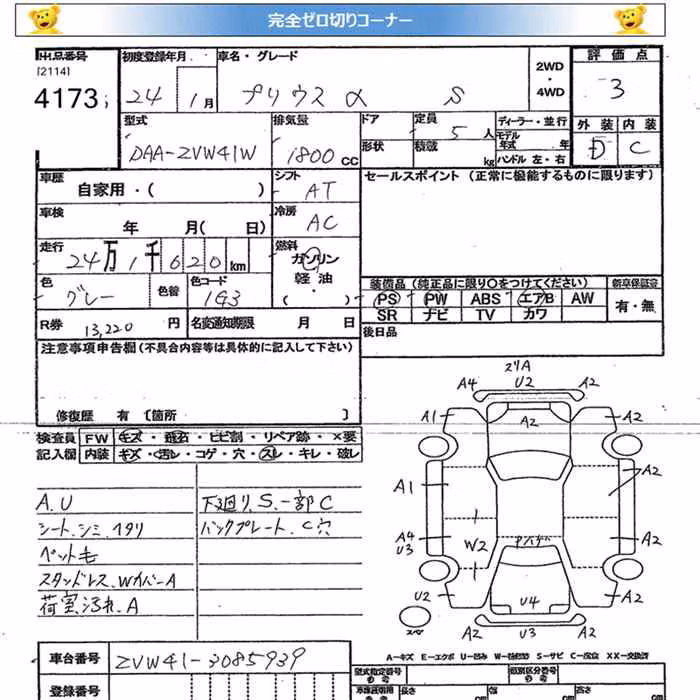 完全ゼロ切りコーナー
出品番号 初度登録年月 車名・グレード 2WD・4WD 評価点
[2114]
4173 24 1月 プリウスα S 3
型式 排気量 ドア 定員 ディーラー・並行 外装 内装
DAA-ZVW41W 1800cc 5人 モデル年式 年 D C
形状 積載 kg ハンドル 左・右
車歴 自家用・( ) シフト AT セールスポイント (正常に機能するものに限ります)
車検 年 月( 日) 冷房 AC
走行 24万1千620km 燃料 ガソリン
軽油
・( )
色 グレー 色替 色コード 1G3 装備品 (純正品に限り○をつけてください) 新車保証書
PS PW ABS エアB AW 有・無
SR ナビ TV カワ
R券 13,220円 名変通知期限 月 日 後日品
注意事項申告欄 (不具合内容等は具体的に記入して下さい)
修復歴 有 〔箇所 〕
検査員 FW キズ・飛石・ヒビ割・リペア跡・×要
記入欄 内装 キズ・汚レ・コゲ・穴・スレ・キレ・破レ
A.U 下廻り.S.一部C
シート.シミ.ヘタリ バックプレート.C穴
ペット毛
スタンドレス.Wカバー.A
荷室汚れ.A
スリA
A4 U2 A2
A1 A2 A2
A1 A2
A4 U3 W2 A2
U2 U4 A2
スペア A2 U3 A2
A-キズ E-エクボ U-凹み W-補修跡 S-サビ C-腐食 XX-交換済
車台番号 ZVW41-3085939
登録番号
型式指定番号 類別区分番号
長さ cm 幅 cm 高さ cm